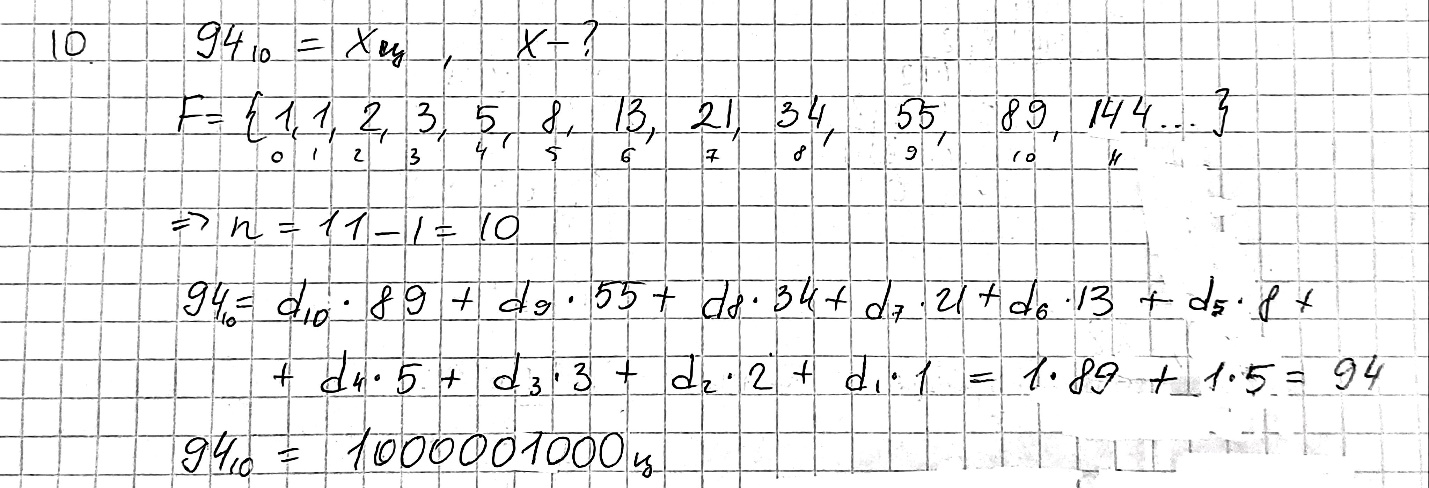 10. 94₁₀ = Xц , X – ?
F = {1, 1, 2, 3, 5, 8, 13, 21, 34, 55, 89, 144 ... }
0 1 2 3 4 5 6 7 8 9 10 11
=> n = 11 – 1 = 10
94₁₀ = d₁₀ · 89 + d₉ · 55 + d₈ · 34 + d₇ · 21 + d₆ · 13 + d₅ · 8 +
+ d₄ · 5 + d₃ · 3 + d₂ · 2 + d₁ · 1 = 1 · 89 + 1 · 5 = 94
94₁₀ = 1000001000ц